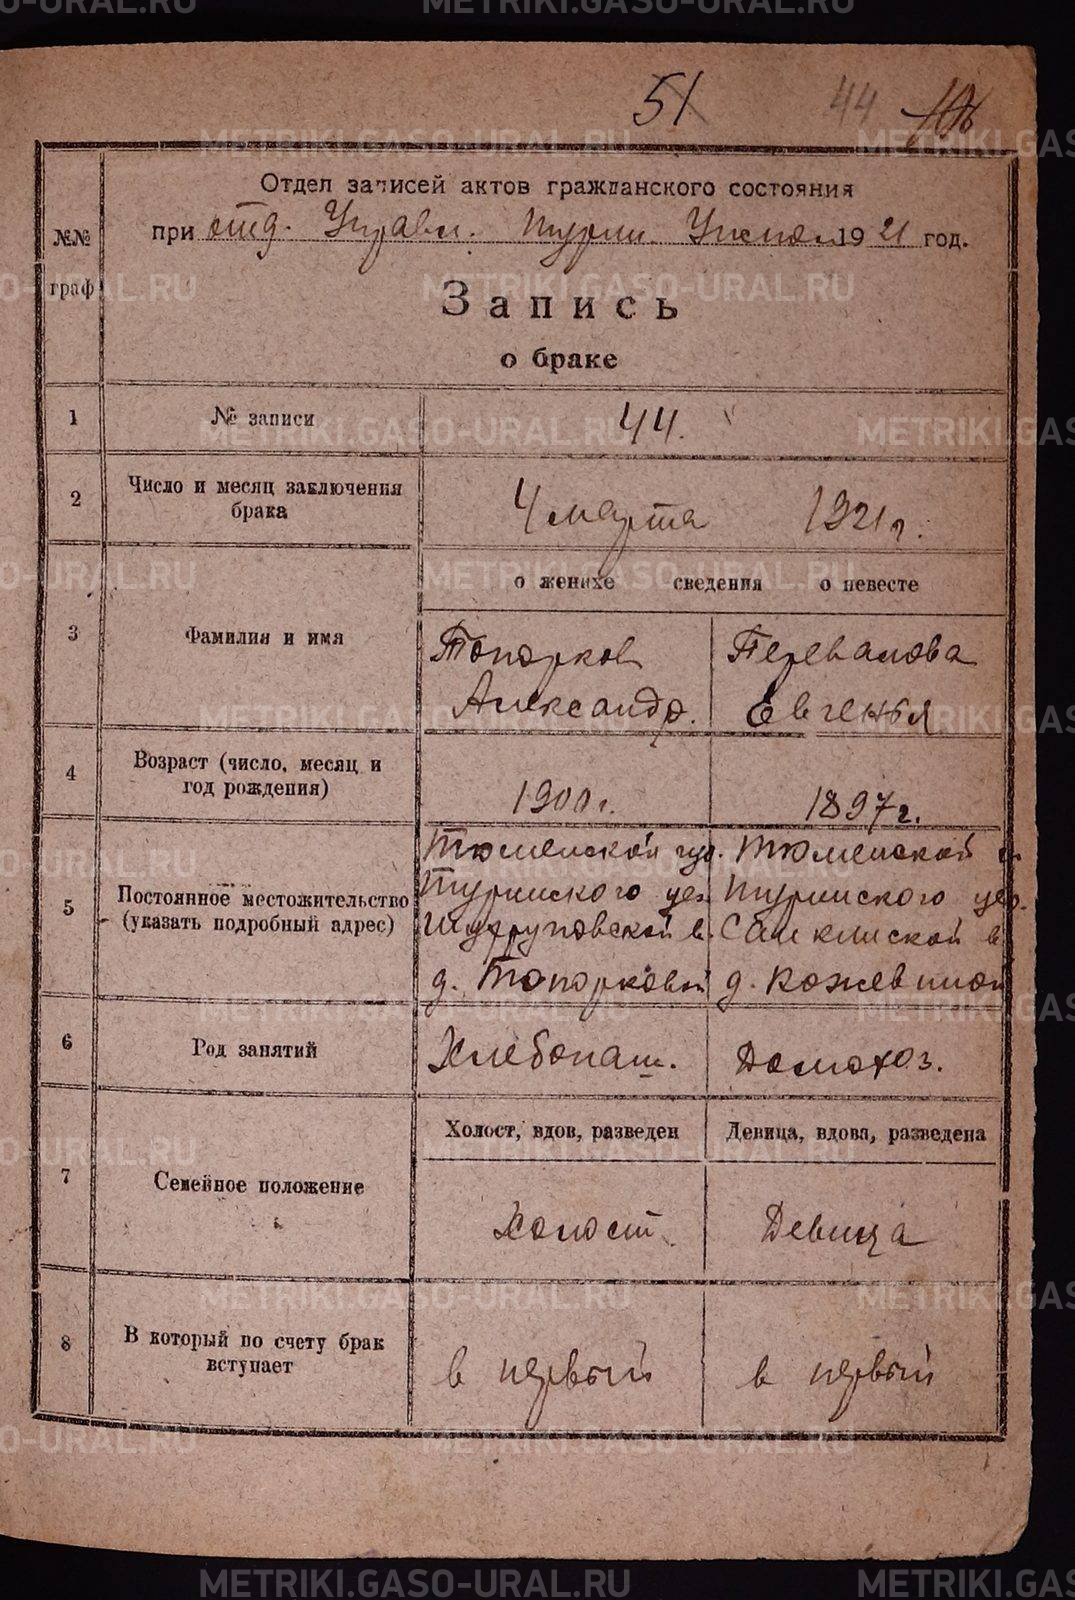 METRIKI.GASO-URAL.RU
51 44 106
№№ граф
Отдел записей актов гражданского состояния
при отд. Управл. Турин. Уисполк 1921 год.
Запись
о браке
1 № записи 44.
2 Число и месяц заключения брака 4 марта 1921 г.
о женихе сведения о невесте
3 Фамилия и имя
Топорков Перевалова
Александр. Евгения
4 Возраст (число, месяц и год рождения) 1900 г. 1897 г.
5 Постоянное местожительство (указать подробный адрес)
Тюменской губ. Тюменской г
Туринского уез. Туринского уез.
в. Санкинской в
д. Топорковой д. Кожевиной
6 Род занятий Хлебопаш. Домохоз.
Холост, вдов, разведен Девица, вдова, разведена
7 Семейное положение Холост. Девица
8 В который по счету брак вступает в первый в первый